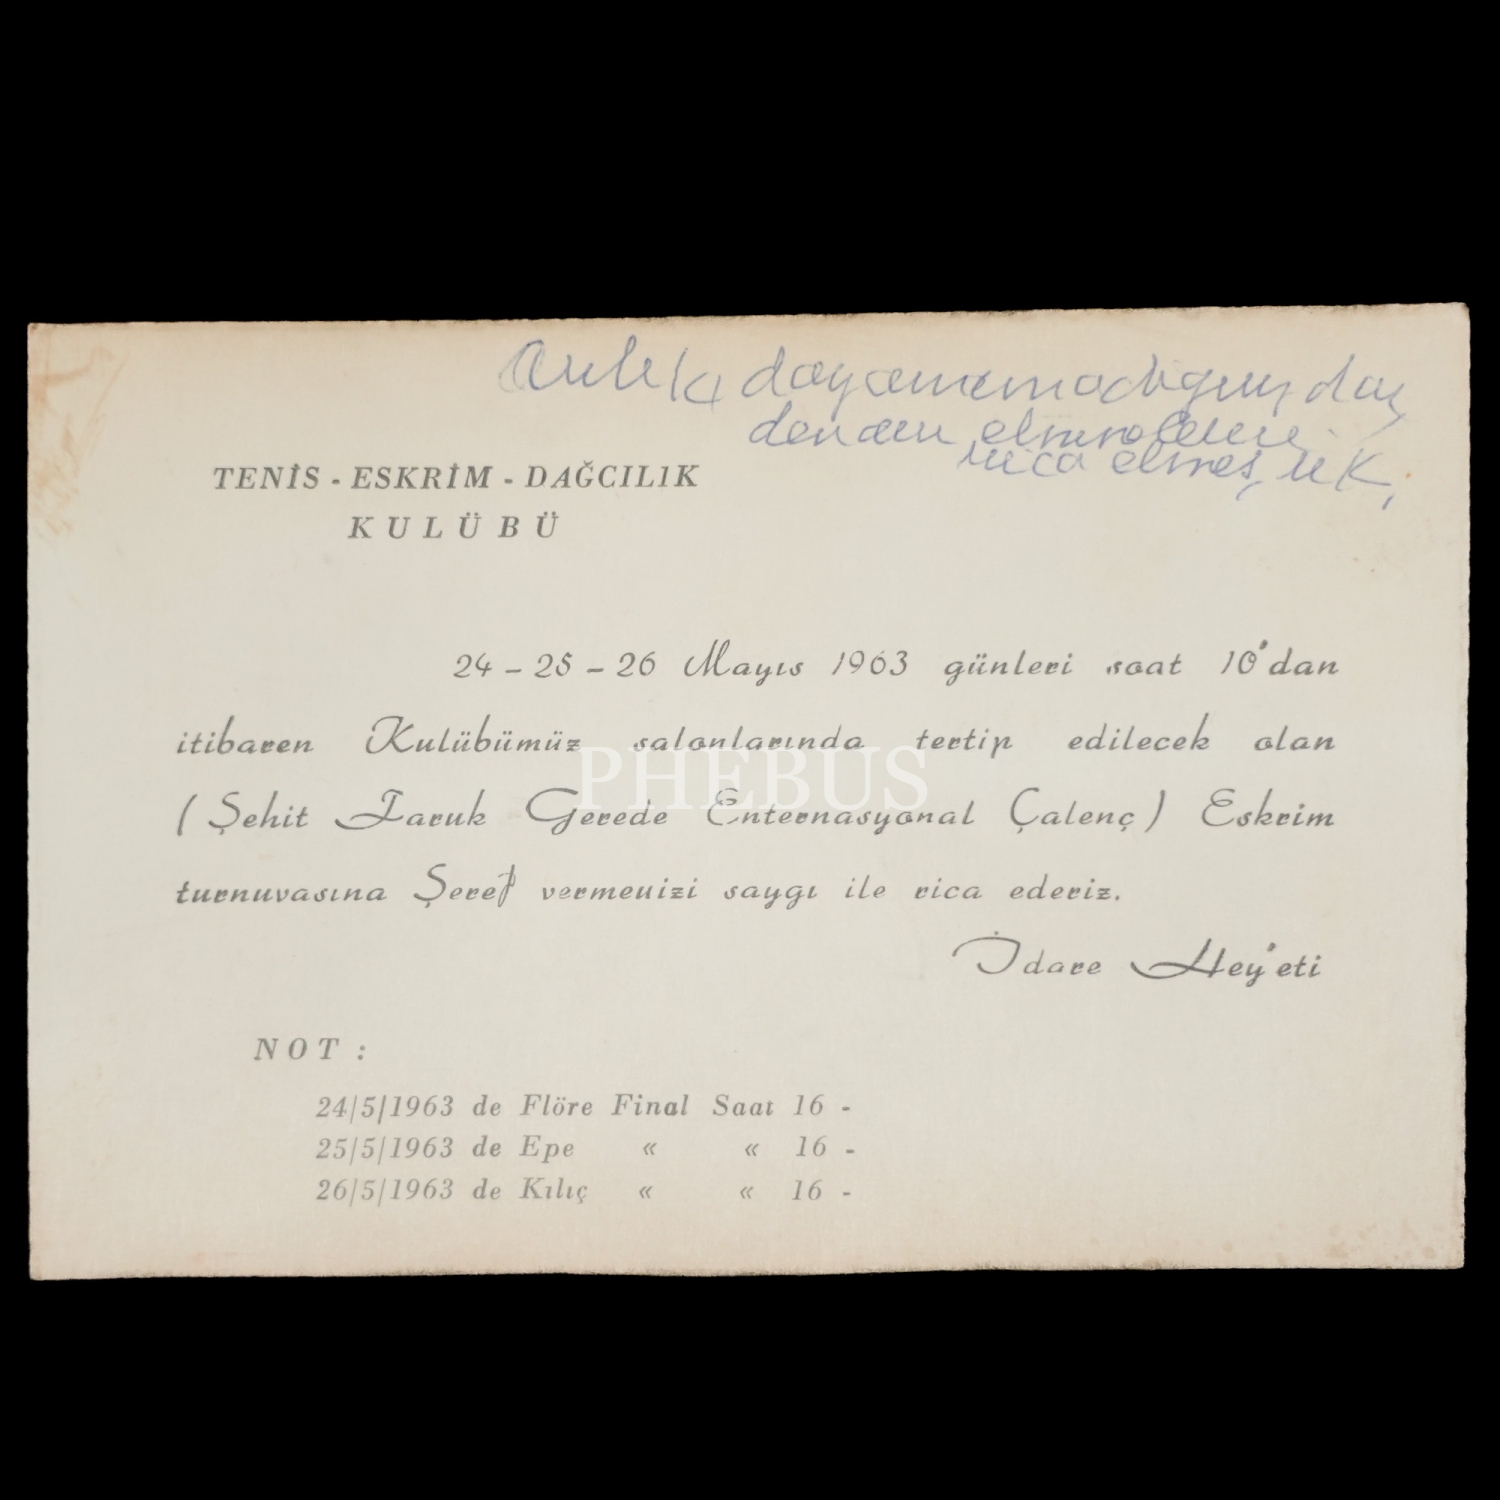 artık dayanamadığım
rica etmek
TENİS - ESKRİM - DAĞCILIK
KULÜBÜ
24 - 25 - 26 Mayıs 1963 günleri saat 10'dan
itibaren Kulübümüz salonlarında tertip edilecek olan
(Şehit Faruk Gerede Enternasyonal Çalenç) Eskrim
turnuvasına Şeref vermenizi saygı ile rica ederiz.
İdare Hey'eti
NOT :
24/5/1963 de Flöre Final Saat 16 -
25/5/1963 de Epe « « 16 -
26/5/1963 de Kılıç « « 16 -
PHEBUS